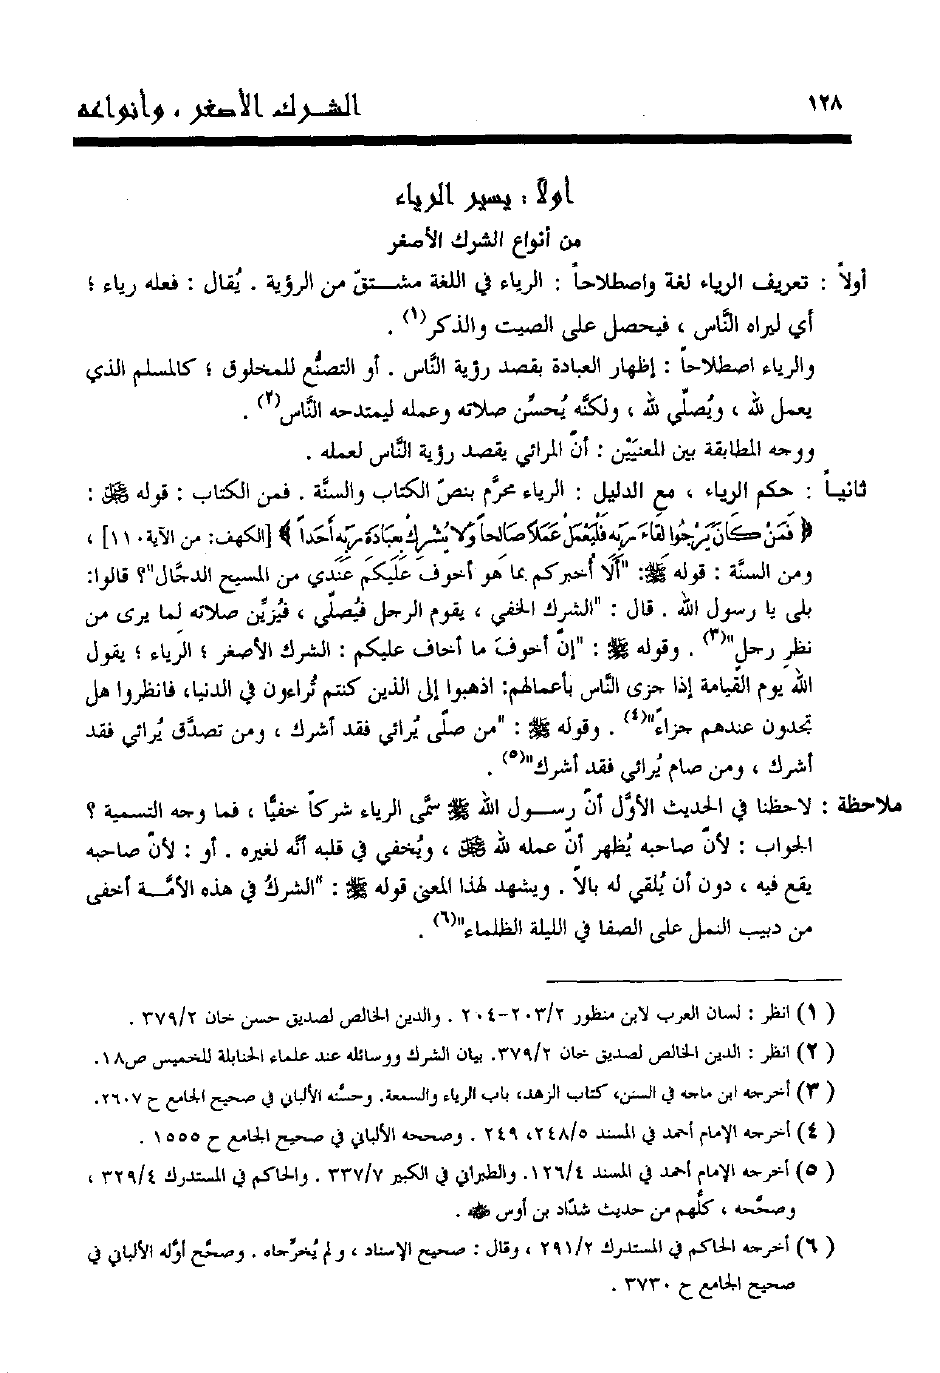 ١٢٨
الشرك الأصغر ، وأنواعه
أولاً : يسير الرياء
من أنواع الشرك الأصغر
أولاً : تعريف الرياء لغة واصطلاحاً : الرياء في اللغة مشتقّ من الرؤية . يُقال : فعله رياء ؛
أي ليراه النَّاس ، فيحصل على الصيت والذكر(١) .
والرياء اصطلاحاً : إظهار العبادة بقصد رؤية النَّاس . أو التصنُّع للمخلوق ؛ كالمسلم الذي
يعمل لله ، ويُصلّي لله ، ولكنَّه يُحسِّن صلاته وعمله ليمتدحه النَّاس(٢) .
ووجه المطابقة بين المعنيَيْن : أنّ المرائي يقصد رؤية النَّاس لعمله .
ثانيـاً : حكم الرياء ، مع الدليل : الرياء محرَّم بنصّ الكتاب والسنَّة . فمن الكتاب : قوله ﷻ :
﴿ فَمَنْ كَانَ يَرْجُوا لِقَاءَ رَبِّهِ فَلْيَعْمَلْ عَمَلًا صَالِحاً وَلَا يُشْرِكْ بِعِبَادَةِ رَبِّهِ أَحَداً ﴾ [الكهف: من الآية١١٠] ،
ومن السنَّة : قوله ﷺ: "أَلَا أُخبركم بما هو أخوف عَلَيكم عَندي من المسيح الدجَّال"؟ قالوا:
بلى يا رسول الله . قال : "الشرك الخفي ، يقوم الرجل فيُصلّي ، فيُزيِّن صلاته لِما يرى من
نظرِ رجل"(٣) . وقوله ﷺ : "إنّ أخوفَ ما أخاف عليكم : الشرك الأصغر ؛ الرياء ؛ يقول
الله يوم القيامة إذا جزى النَّاس بأعمالهم: اذهبوا إلى الذين كنتم تُراءون في الدنيا، فانظروا هل
تجدون عندهم جزاءً"(٤) . وقوله ﷺ : "من صلّى يُرائي فقد أشرك ، ومن تصدَّق يُرائي فقد
أشرك ، ومن صام يُرائي فقد أشرك"(٥) .
ملاحظة : لاحظنا في الحديث الأوَّل أنّ رسـول الله ﷺ سمَّى الرياء شركاً خفيًّا ، فما وجه التسمية ؟
الجواب : لأنّ صاحبه يُظهر أنّ عمله لله ﷻ ، ويُخفي في قلبه أنَّه لغيره . أو : لأنّ صاحبه
يقع فيه ، دون أن يُلقي له بالاً . ويشهد لهذا المعنى قوله ﷺ : "الشركُ في هذه الأمَّـة أخفى
من دبيب النمل على الصفا في الليلة الظلماء"(٦) .
( ١) انظر : لسان العرب لابن منظور ٢٠٣/٢-٢٠٤ . والدين الخالص لصديق حسن خان ٣٧٩/٢ .
( ٢) انظر : الدين الخالص لصديق خان ٣٧٩/٢. بيان الشرك ووسائله عند علماء الحنابلة للخميس ص١٨.
( ٣) أخرجه ابن ماجه في السنن، كتاب الزهد، باب الرياء والسمعة. وحسَّنه الألباني في صحيح الجامع ح ٢٦٠٧.
( ٤) أخرجه الإمام أحمد في المسند ٢٤٨/٥، ٢٤٩ . وصححه الألباني في صحيح الجامع ح ١٥٥٥ .
( ٥) أخرجه الإمام أحمد في المسند ١٢٦/٤. والطبراني في الكبير ٣٣٧/٧ . والحاكم في المستدرك ٣٢٩/٤ ،
وصحَّحه ، كلُّهم من حديث شدّاد بن أوس ﷺ .
( ٦) أخرجه الحاكم في المستدرك ٢٩١/٢ ، وقال : صحيح الإسناد ، ولم يُخرّجاه . وصحَّح أوَّله الألباني في
صحيح الجامع ح ٣٧٣٠ .